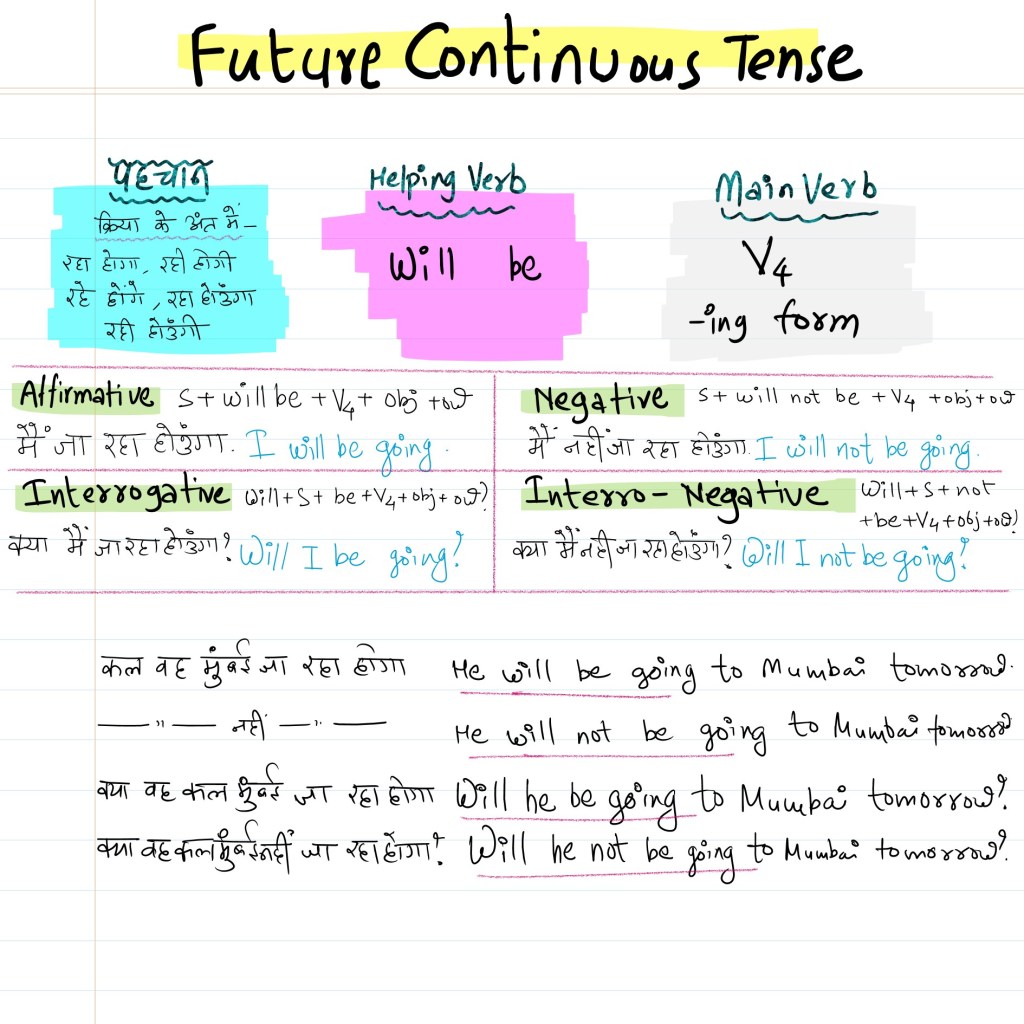 Future Continuous Tense
पहचान
क्रिया के अंत में -
रहा होगा, रही होगी
रहे होंगे, रहा होउँगा
रही होउँगी
Helping Verb
Will be
Main Verb
V4
-ing form
Affirmative S+ will be + V4 + obj + ow
मैं जा रहा होउँगा. I will be going.
Negative S+ will not be + V4 +obj+ow
मैं नहीं जा रहा होउँगा. I will not be going.
Interrogative Will+S+ be+V4+obj+ow?
क्या मैं जा रहा होउँगा? Will I be going?
Interro-Negative Will+S+not
+be+V4+obj+ow?
क्या मैं नही जा रहा होउँगा? Will I not be going?
कल वह मुंबई जा रहा होगा He will be going to Mumbai tomorrow.
—— " —— नहीं —— " —— He will not be going to Mumbai tomorrow
क्या वह कल मुंबई जा रहा होगा Will he be going to Mumbai tomorrow?
क्या वह कल मुंबई नहीं जा रहा होगा? Will he not be going to Mumbai tomorrow?